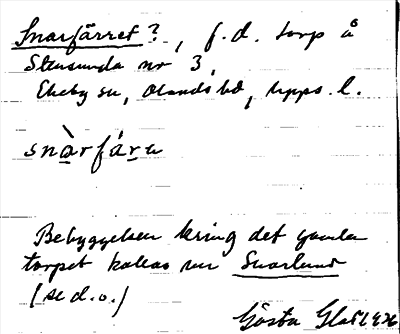 Snarfärret?, f.d. torp å
Stensunda nr 3,
Ekeby sn, Olands hd, Upps. l.
snàrfáre
Bebyggelsen kring det gamla
torpet kallas nu Snarlund
(se d.o.)
Gösta